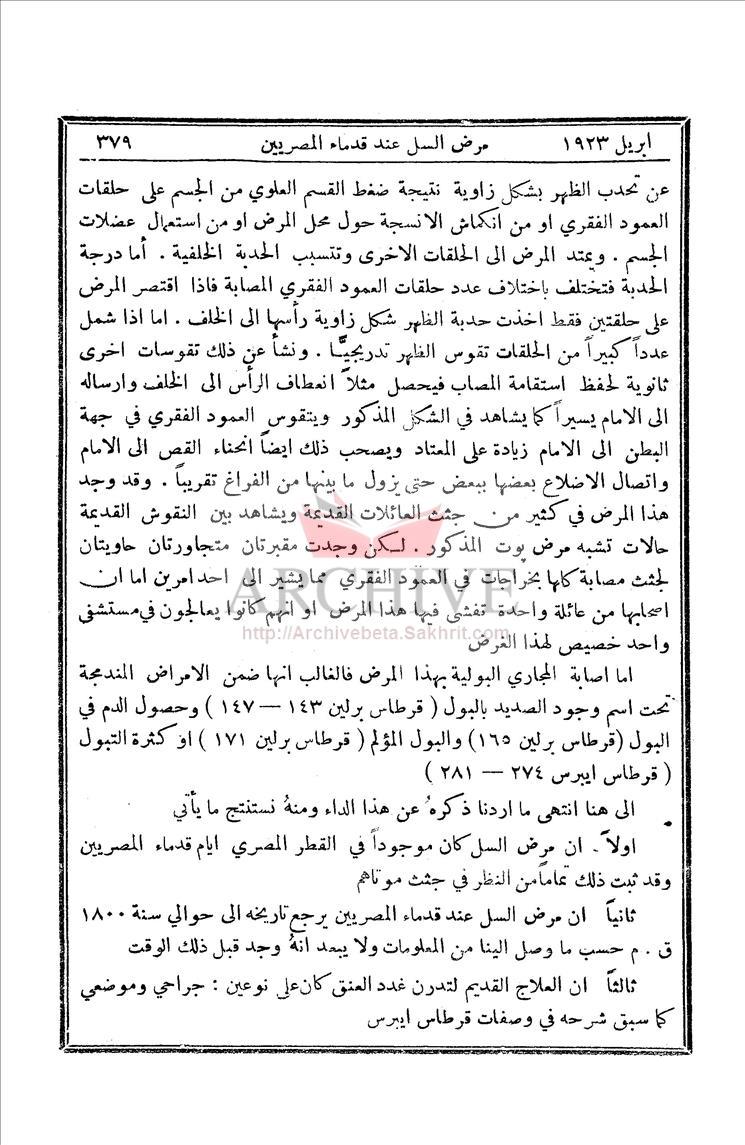 ابريل ١٩٢٣ مرض السل عند قدماء المصريين ٣٧٩
عن تحدب الظهر بشكل زاوية نتيجة ضغط القسم العلوي من الجسم على حلقات
العمود الفقري او من انكماش الانسجة حول محل المرض او من استعمال عضلات
الجسم . ويمتد المرض الى الحلقات الاخرى وتتسبب الحدبة الخلفية . أما درجة
الحدبة فتختلف باختلاف عدد حلقات العمود الفقري المصابة فاذا اقتصر المرض
على حلقتين فقط اخذت حدبة الظهر شكل زاوية رأسها الى الخلف . اما اذا شمل
عدداً كبيراً من الحلقات تقوس الظهر تدريجيًّا . ونشأ عن ذلك تقوسات اخرى
ثانوية لحفظ استقامة المصاب فيحصل مثلاً انعطاف الرأس الى الخلف وارساله
الى الامام يسيراً كما يشاهد في الشكل المذكور ويتقوس العمود الفقري في جهة
البطن الى الامام زيادة على المعتاد ويصحب ذلك ايضاً انحناء القص الى الامام
واتصال الاضلاع بعضها ببعض حتى يزول ما بينها من الفراغ تقريباً . وقد وجد
هذا المرض في كثير من جثث العائلات القديمة ويشاهد بين النقوش القديمة
حالات تشبه مرض پوت المذكور . لكن وجدت مقبرتان متجاورتان حاويتان
لجثث مصابة كلها بخراجات في العمود الفقري مما يشير الى احد امرين اما ان
اصحابها من عائلة واحدة تفشى فيها هذا المرض او انهم كانوا يعالجون في مستشفى
واحد خصيص لهذا الغرض
ARCHIVE
http://Archivebeta.Sakhrit.com
اما اصابة المجاري البولية بهذا المرض فالغالب انها ضمن الامراض المندمجة
تحت اسم وجود الصديد بالبول ( قرطاس برلين ١٤٣ — ١٤٧ ) وحصول الدم في
البول (قرطاس برلين ١٦٥) والبول المؤلم ( قرطاس برلين ١٧١ ) او كثرة التبول
( قرطاس ايبرس ٢٧٤ — ٢٨١ )
الى هنا انتهى ما اردنا ذكرهُ عن هذا الداء ومنهُ نستنتج ما يأتي
اولاً . ان مرض السل كان موجوداً في القطر المصري ايام قدماء المصريين
وقد ثبت ذلك تماماً من النظر في جثث موتاهم
ثانياً ان مرض السل عند قدماء المصريين يرجع تاريخه الى حوالي سنة ١٨٠٠
ق . م حسب ما وصل الينا من المعلومات ولا يبعد انهُ وجد قبل ذلك الوقت
ثالثاً ان العلاج القديم لتدرن غدد العنق كان على نوعين : جراحي وموضعي
كما سبق شرحه في وصفات قرطاس ايبرس